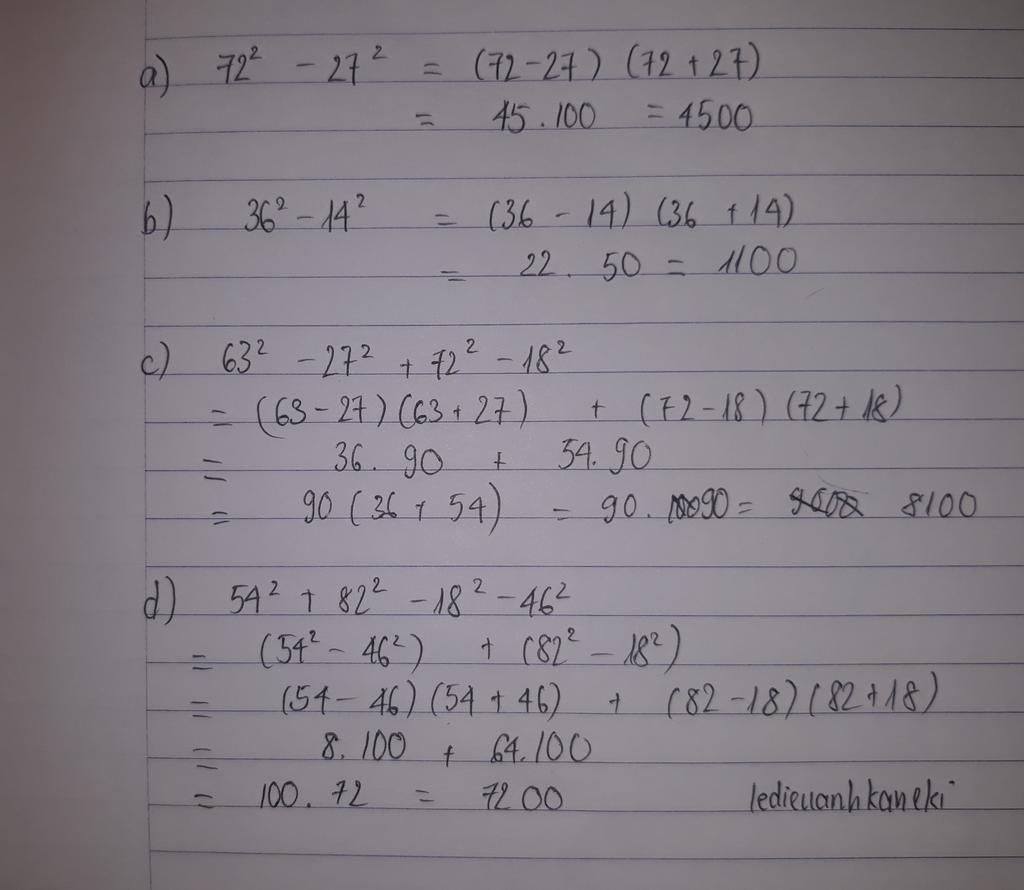 a) 72² - 27² = (72-27) (72+27)
= 45.100 = 4500
b) 36² - 14² = (36 - 14) (36 + 14)
= 22. 50 = 1100
c) 63² - 27² + 72² - 18²
= (63-27)(63+27) + (72-18) (72+18)
= 36. 90 + 54.90
= 90 (36 + 54) = 90. 90 = 8100
d) 54² + 82² - 18² - 46²
= (54² - 46²) + (82² - 18²)
= (54 - 46) (54 + 46) + (82 - 18) (82+18)
= 8. 100 + 64.100
= 100. 72 = 7200 ledieuanhkaneki